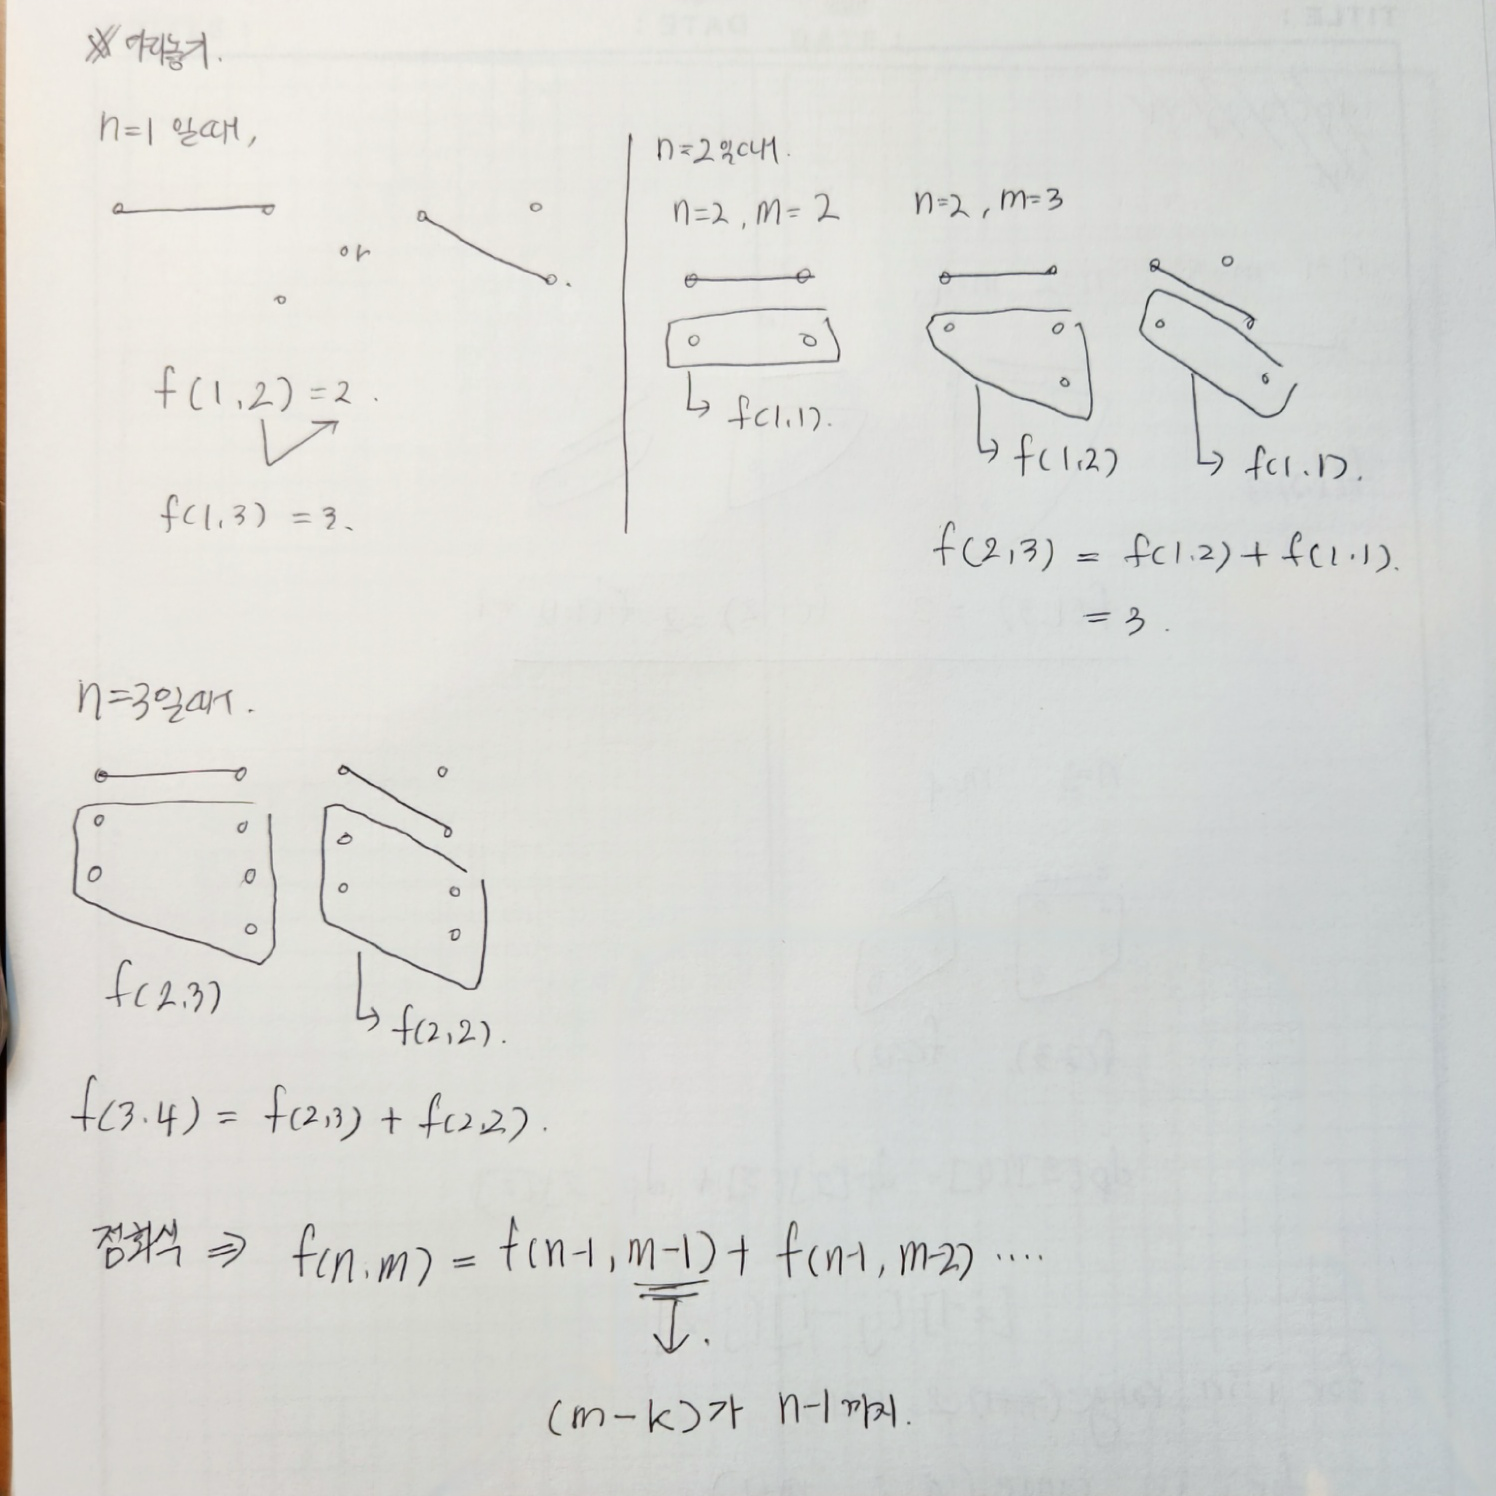 ※ 다리놓기.
n=1 일때,
or
f(1,2) = 2.
f(1,3) = 3.
n=2일때.
n=2, m=2
f(1.1).
n=2, m=3
f(1,2)
f(1.1).
f(2,3) = f(1.2) + f(1.1).
= 3.
n=3일때.
f(2.3)
f(2,2).
f(3.4) = f(2,3) + f(2,2).
점화식 ⇒ f(n.m) = f(n-1, m-1) + f(n-1, m-2) ....
(m-k)가 n-1 까지.